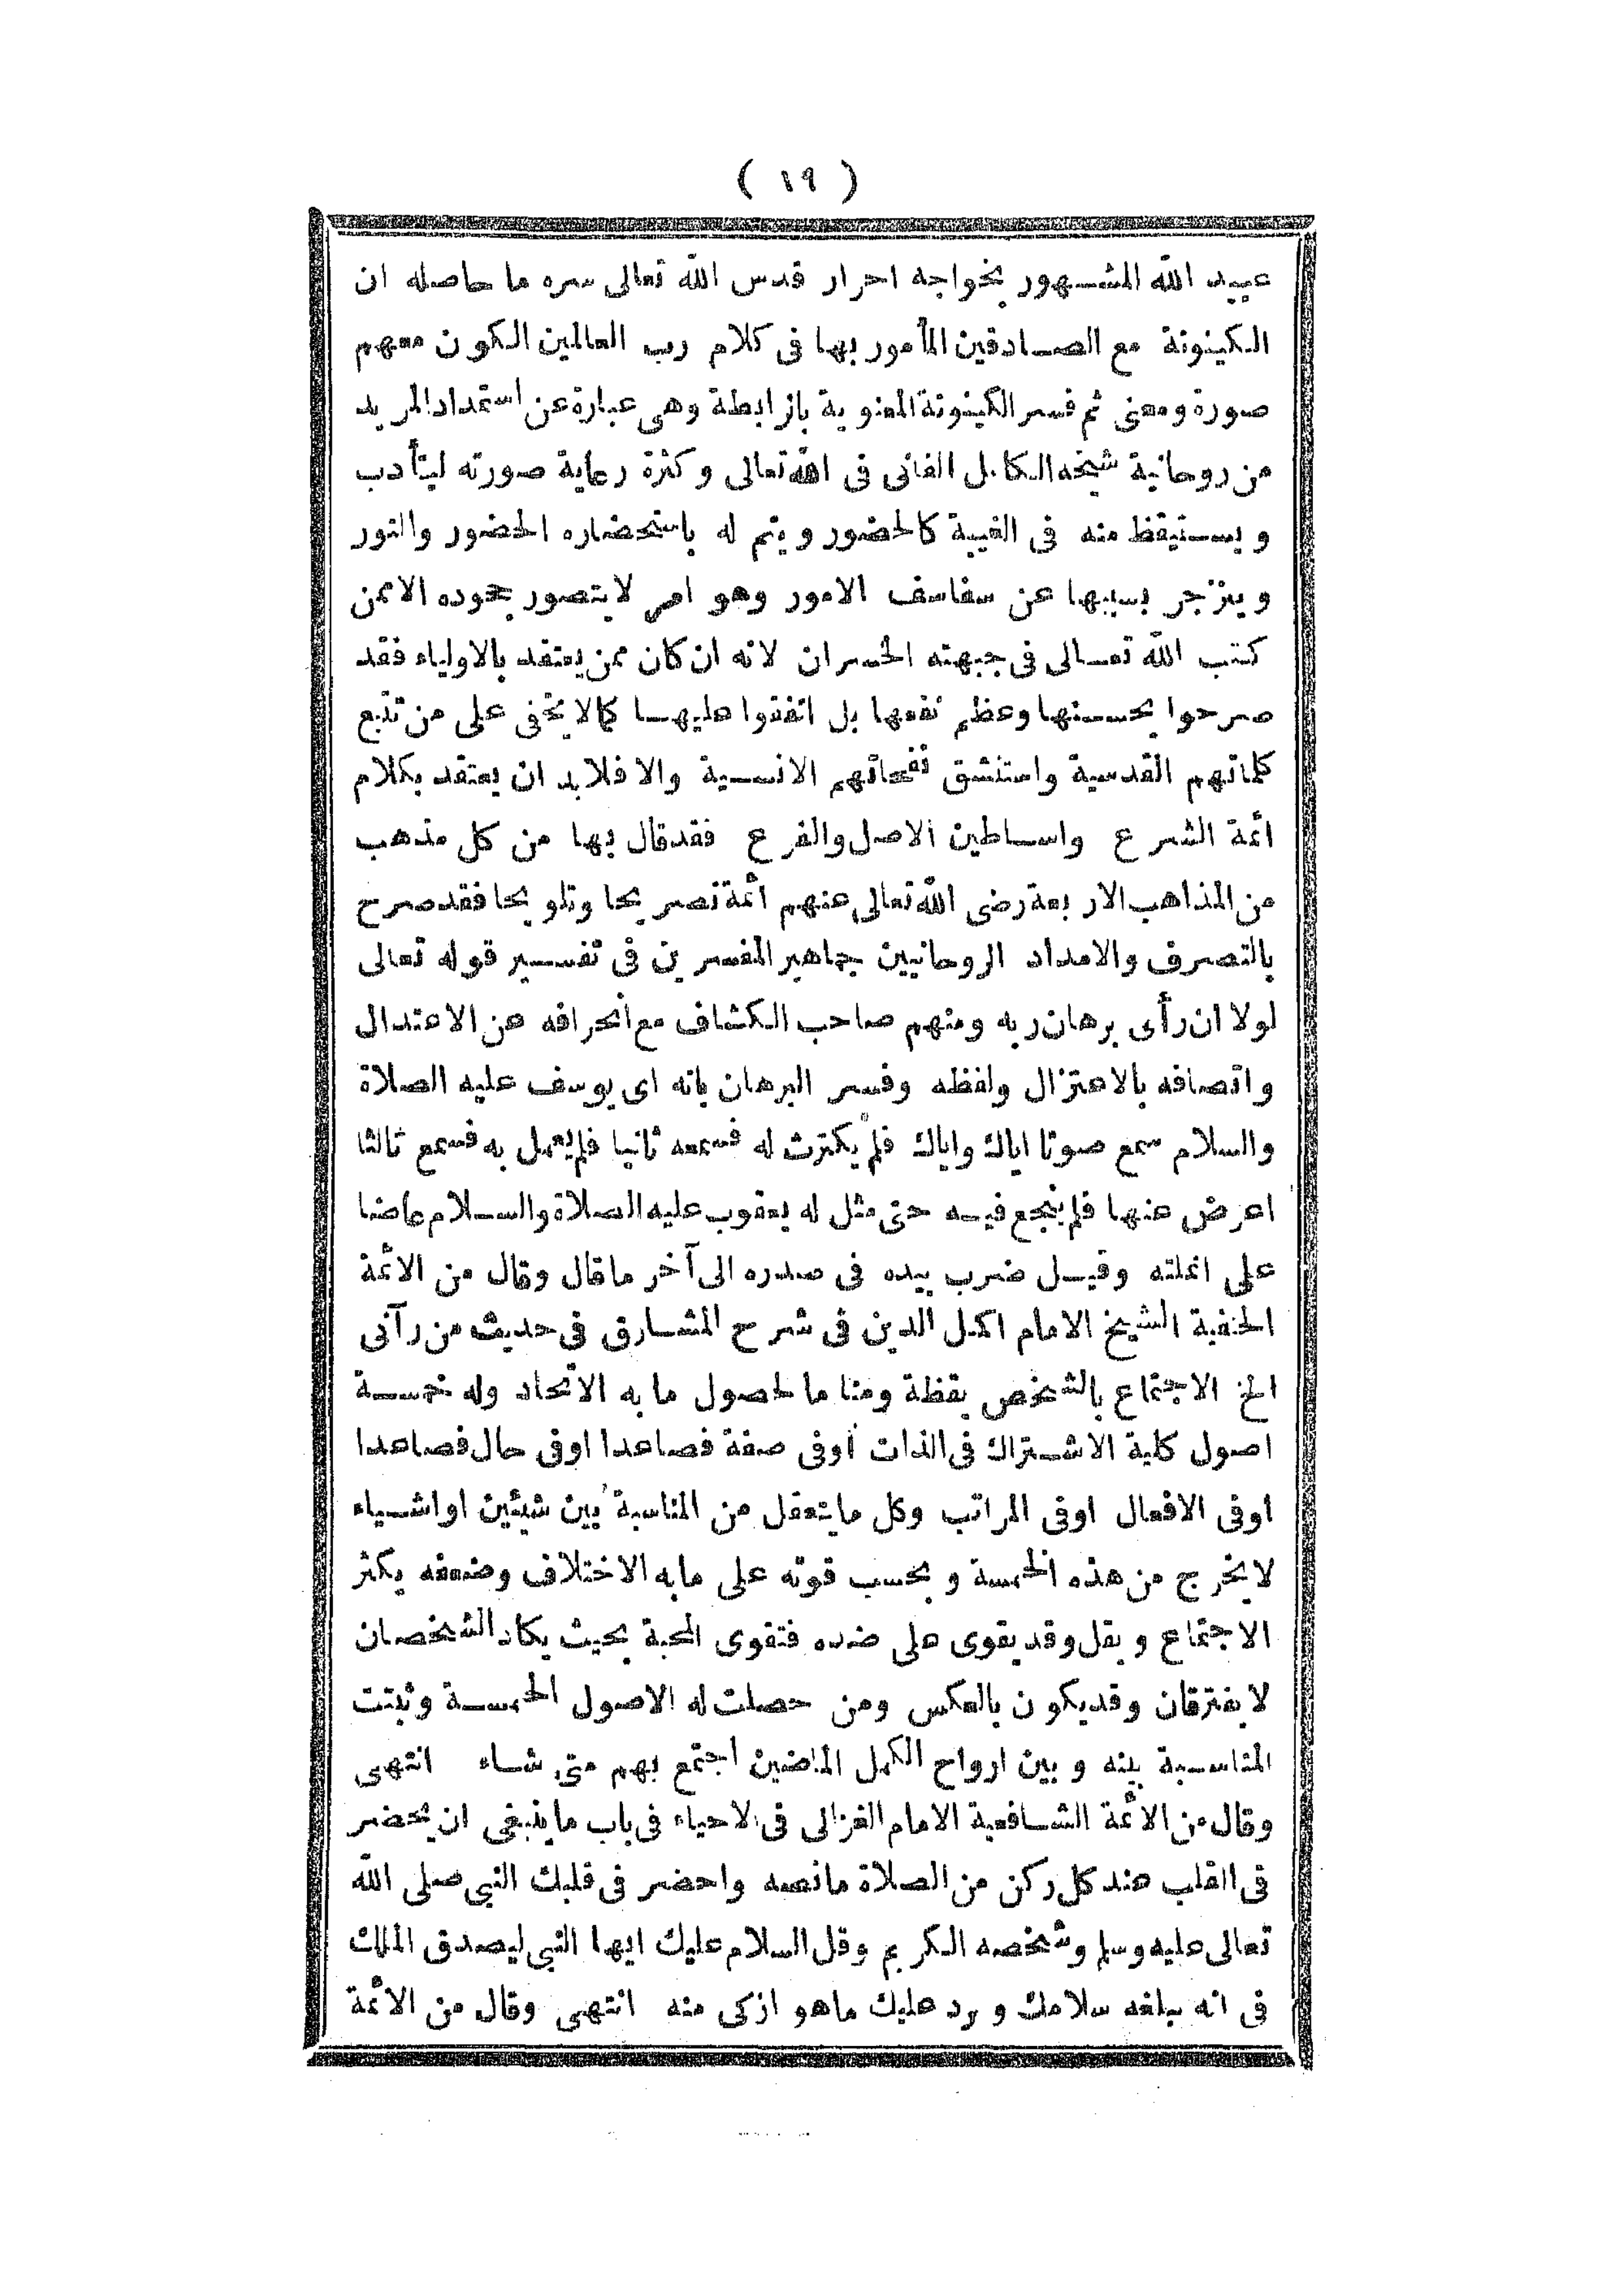 ( ١٩ )
عبيد الله المشهور بخواجه احرار قدس الله تعالى سره ما حاصله ان
الكينونة مع الصادقين المأمور بها فى كلام رب العالمين الكون معهم
صورة ومعنى ثم فسر الكينونة المعنوية بالرابطة وهى عبارة عن استمداد المريد
من روحانية شيخه الكامل الفانى فى الله تعالى وكثرة رعاية صورته ليتأدب
ويستيقظ منه فى الغيبة كالحضور ويتم له باستحضاره الحضور والنور
وينزجر بسببها عن سفاسف الامور وهو امر لا يتصور جحوده الا ممن
كتب الله تعالى فى جبهته الخسران لانه ان كان ممن يعتقد بالاولياء فقد
صرحوا بحسنها وعظم نفعها بل اتفقوا عليها كما لا يخفى على من تتبع
كلماتهم القدسية واستنشق نفحاتهم الانسية والا فلا بد ان يعتقد بكلام
ائمة الشرع واساطين الاصل والفرع فقد قال بها من كل مذهب
من المذاهب الاربعة رضى الله تعالى عنهم ائمة تصريحا وتلويحا فقد صرح
بالتصرف والامداد الروحانيين جماهير المفسرين فى تفسير قوله تعالى
لولا ان رأى برهان ربه ومنهم صاحب الكشاف مع انحرافه عن الاعتدال
واتصافه بالاعتزال ولفظه وفسر البرهان بانه اى يوسف عليه الصلاة
والسلام سمع صوتا اياك واياك فلم يكترث له فسمعه ثانيا فلم يعمل به فسمع ثالثا
اعرض عنها فلم ينجع فيه حتى مثل له يعقوب عليه الصلاة والسلام عاضا
على انملته وقيل ضرب بيده فى صدره الى آخر ما قال وقال من الائمة
الحنفية الشيخ الامام اكمل الدين فى شرح المشارق فى حديث من رآنى
الخ الاجتماع بالشخص يقظة ومناما لحصول ما به الاتحاد وله خمسة
اصول كلية الاشتراك فى الذات اوفى صفة فصاعدا اوفى حال فصاعدا
اوفى الافعال اوفى المراتب وكل ما يتعقل من المناسبة بين شيئين او اشياء
لا يخرج من هذه الخمسة وبحسب قوته على ما به الاختلاف وضعفه يكثر
الاجتماع ويقل وقد يقوى على ضده فتقوى المحبة بحيث يكاد الشخصان
لا يفترقان وقد يكون بالعكس ومن حصلت له الاصول الخمسة وثبتت
المناسبة بينه وبين ارواح الكمل الماضين اجتمع بهم متى شاء انتهى
وقال من الائمة الشافعية الامام الغزالى فى الاحياء فى باب ما ينبغى ان يحضر
فى القلب عند كل ركن من الصلاة ما نصه واحضر فى قلبك النبى صلى الله
تعالى عليه وسلم وشخصه الكريم وقل السلام عليك ايها النبى ليصدق املك
فى انه يبلغه سلامك ويرد عليك ما هو ازكى منه انتهى وقال من الائمة